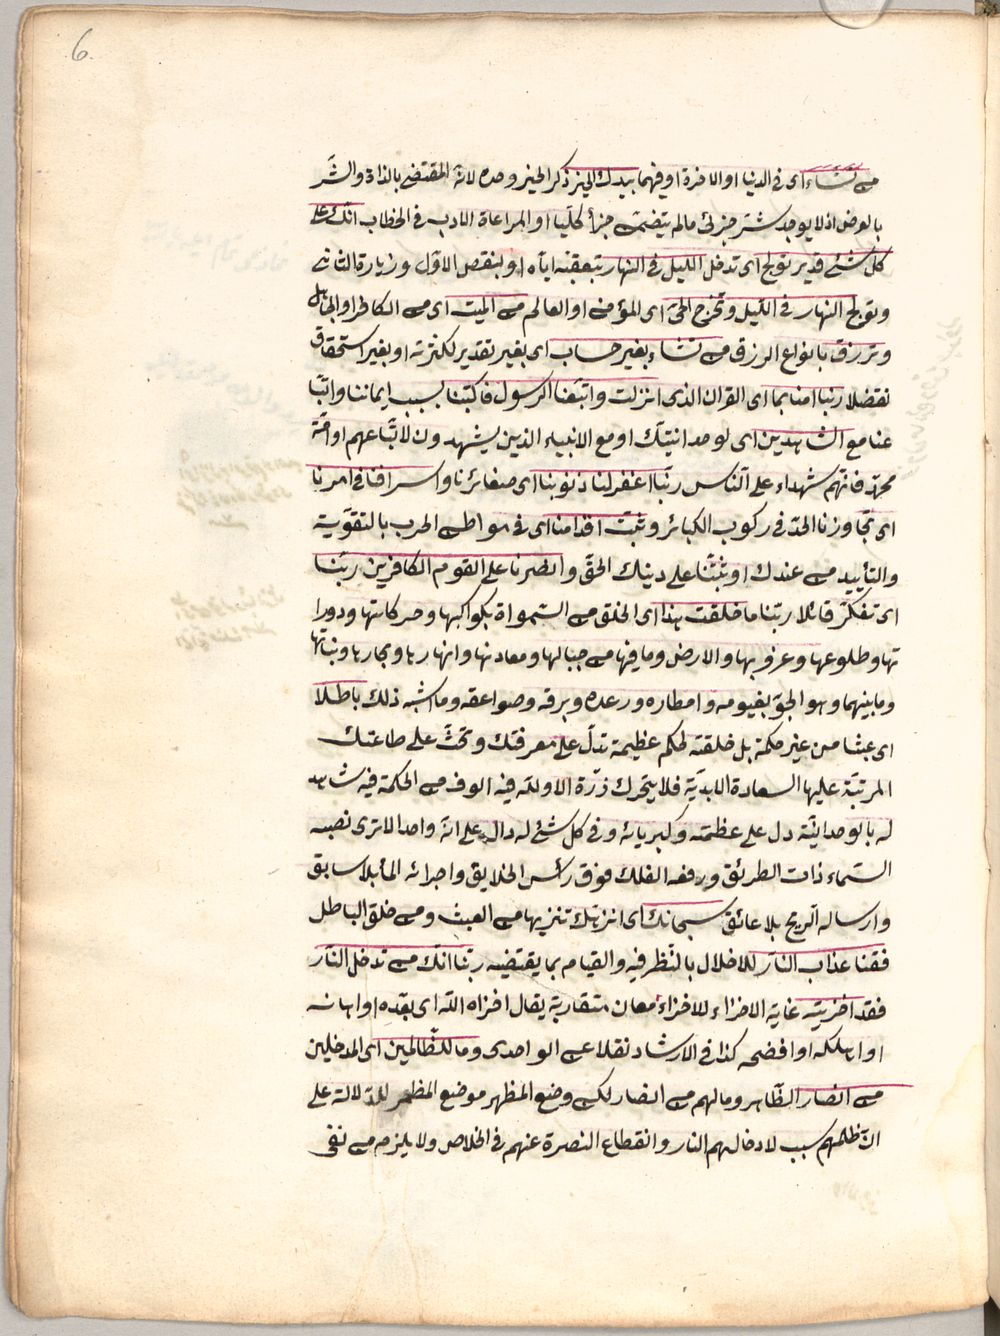 6.
من تشاء اى فى الدنيا او الاخرة او فيهما بيدك الخير ذكر الخير وحده لانه المقتضى بالذات والشر
بالعرض اذ لا يوجد شر جزئى مالم يتضمن خيرا كليا او لمراعاة الادب فى الخطاب انك على
كل شئ قدير تولج اى تدخل الليل فى النهار بتعقبه اياه او بنقص الاول وزيارة الثانى
وتولج النهار فى الليل وتخرج الحى اى المؤمن او العالم من الميت اى من الكافر او الجاهل
وترزق بانواع الرزق من تشاء بغير حساب اى بغير تقدير لكثرته او بغير استحقاق
تفضلا ربنا امنا بما اى القران الذى انزلت واتبعنا الرسول فاكتبنا بسبب ايماننا واتبا
عنا مع الشاهدين اى لوحدانيتك او مع الانبياء الذين يشهدون لاتباعهم او امة
محمد فانهم شهداء على الناس ربنا اغفر لنا ذنوبنا اى صغائرنا واسرافنا فى امرنا
اى تجاوزنا الحد فى ركوب الكبائر وثبت اقدامنا اى فى مواطن الحرب بالتقوية
والتأييد من عندك او ثبتنا على دينك الحق وانصرنا على القوم الكافرين ربنا
اى تفكر قائلا ربنا ما خلقت هذا اى الخلق من السموات بكواكبها وحركاتها ودورا
تها وطلوعها وغروبها والارض وما فيها من جبالها ومعادنها وانهارها وبحارها ونباتها
وما بينهما وهو الجو بغيومه وامطاره ورعده وبرقه وصواعقه وما اشبه ذلك باطلا
اى عبثا من غير حكمة بل خلقته لحكم عظيمة تدل على معرفتك وتحث على طاعتك
المرتبة عليها السعادة الابدية فلا يتحرك ذرة الا ولله فيه الوف من الحكمة فيه شاهد
له بالوحدانية دل على عظمته وكبريائه وفى كل شئ له دال على انه واحد الا ترى نصبه
السماء ذات الطرئق ورفعه الفلك فوق رأس الخلايق واجرائه الماء بلا سابق
وارساله الريح بلا عائق سبحانك اى انزهك تنزيها من العبث ومن خلق الباطل
فقنا عذاب النار للاخلال بالنظر فيه والقيام بما يقتضيه ربنا انك من تدخل النار
فقد اخزيته غاية الاخزاء للاخزاء معان متقاربة يقال اخزاه الله اى بعده او اهانه
او اهلكه او افضحه كذا فى الارشاد نقلا عن الواحدى وما للظالمين اى المدخلين
من انصار الظاهر وما لهم من انصار لكن وضع المظهر موضع المظمر للدلالة على
ان ظلمهم سبب لادخالهم النار وانقطاع النصرة عنهم فى الخلاص ولا يلزم من نفى